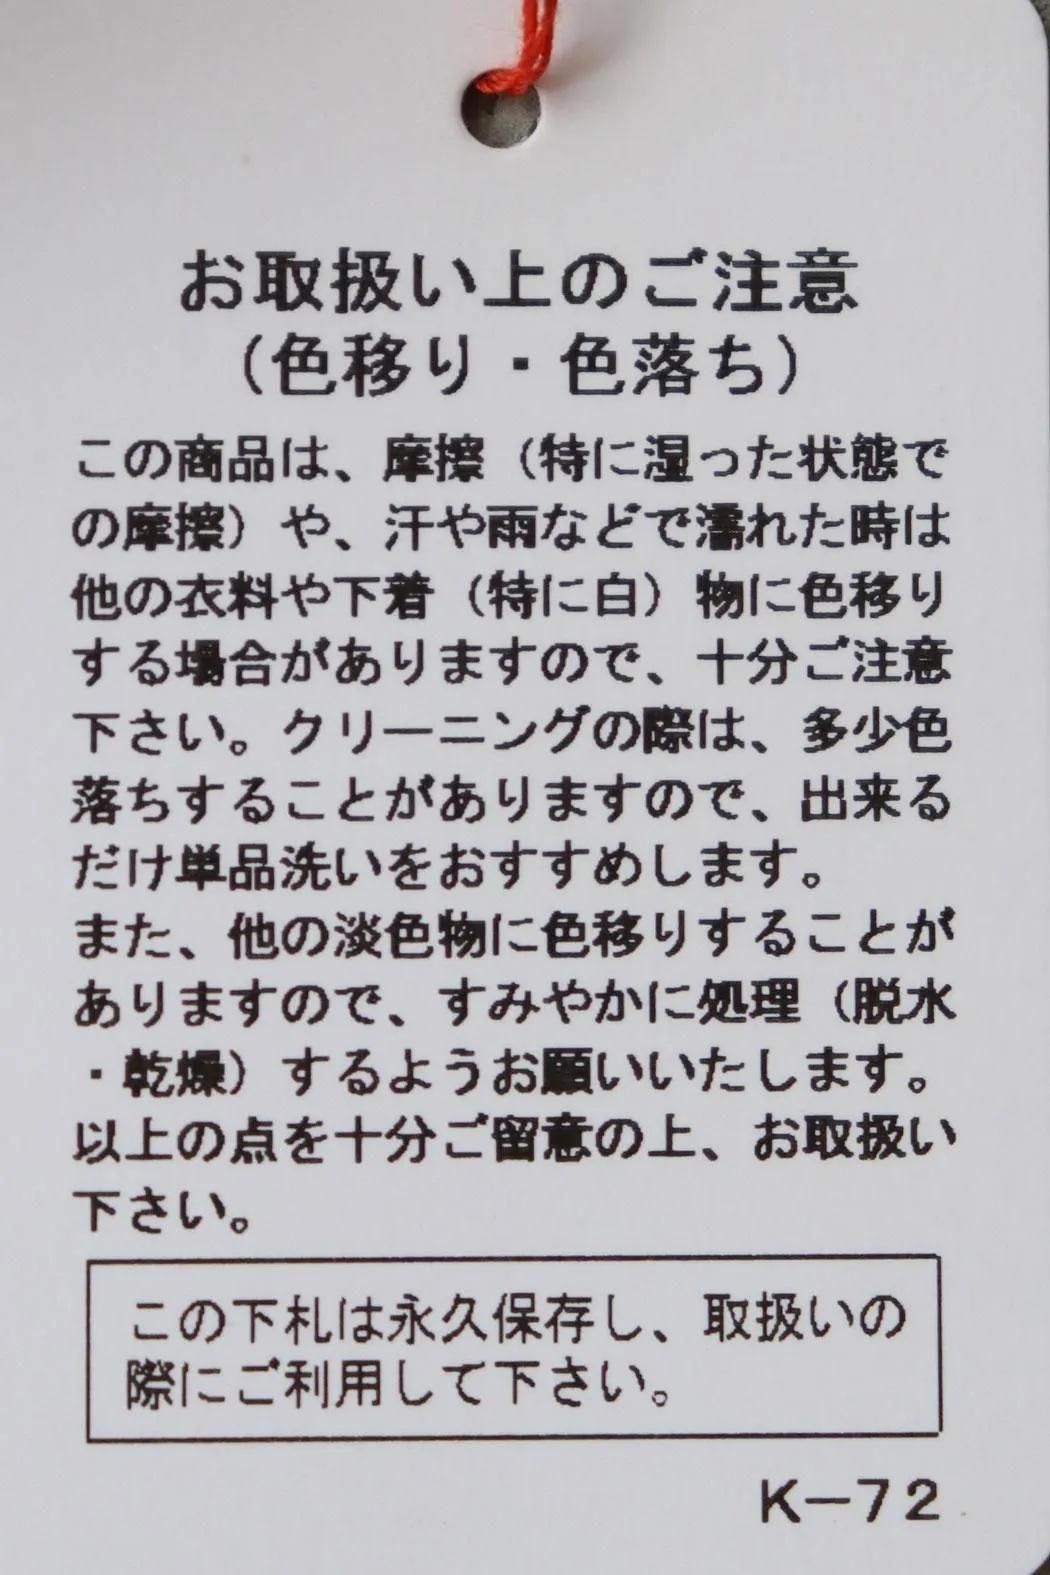 お取扱い上のご注意
（色移り・色落ち）
この商品は、摩擦（特に湿った状態で
の摩擦）や、汗や雨などで濡れた時は
他の衣料や下着（特に白）物に色移り
する場合がありますので、十分ご注意
下さい。クリーニングの際は、多少色
落ちすることがありますので、出来る
だけ単品洗いをおすすめします。
また、他の淡色物に色移りすることが
ありますので、すみやかに処理（脱水
・乾燥）するようお願いいたします。
以上の点を十分ご留意の上、お取扱い
下さい。
この下札は永久保存し、取扱いの
際にご利用して下さい。
K－72